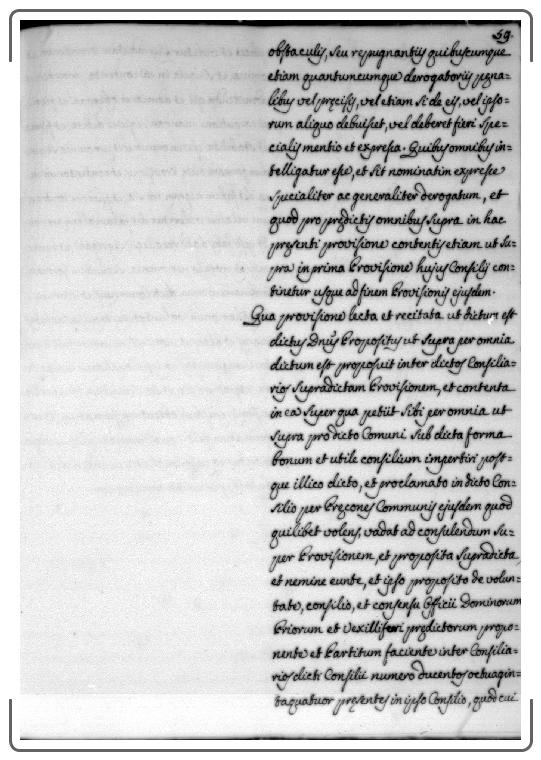 59.
obstaculis, seu repugnantiis quibuscumque
etiam quantumcumque derogatoriis pęna=
libus vel pręcisis, vel etiam si de eis, vel ipso=
rum aliquo debuisset, vel deberet fieri spe=
cialis mentio et expressa. Quibus omnibus in=
telligatur esse, et sit nominatin expresse
specialiter ac generaliter derogatum, et
quod pro prędictis omnibus supra in hac
pręsenti provisione contentis etiam ut su=
pra in prima Provisione hujus Consilij con=
tinetur usque ad finem Provisionis ejusdem.
Qua provisione lecta et recitata ut dictum est
dictus Dnus Propositus ut supra per omnia
dictum est proposuit inter dictos Consilia=
rios supradictam Provisionem, et contenta
in ea super qua petiit sibi per omnia ut
supra pro dicto Comuni sub dicta forma
bonum et utile consilium impertiri post=
que illico dicto, et proclamato in dicto Con=
silio per Pręcones Communis ejusdem quod
quilibet volens, vadat ad consulendum su=
per Provisionem, et proposita supradicta
et nemine eunte, et ipso proposito de volun=
tate, consilio, et consensu Officii Dominorum
Priorum et Vexilliferi prędictorum propo=
nente et Partitum faciente inter Consilia=
rios dicti Consilii numero ducentos octuagin=
taquatuor pręsentes in ipso Consilio, quod cui